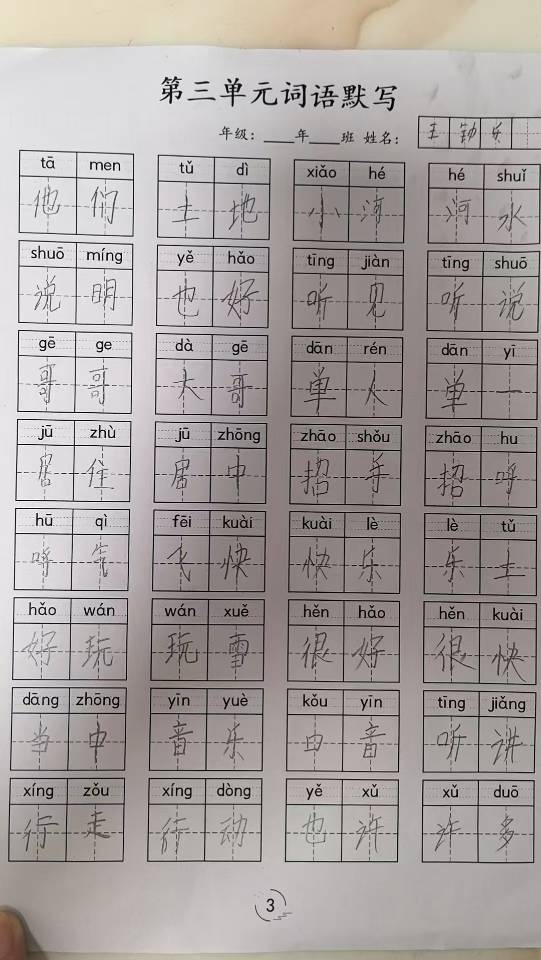 第三单元词语默写
年级：____年____班 姓名： 王 勤 乐
tā men tǔ dì xiǎo hé hé shuǐ
他们 土地 小河 河水
shuō míng yě hǎo tīng jiàn tīng shuō
说明 也好 听见 听说
gē ge dà gē dān rén dān yī
哥哥 大哥 单人 单一
jū zhù jū zhōng zhāo shǒu zhāo hu
居住 居中 招手 招呼
hū qì fēi kuài kuài lè lè tǔ
呼气 飞快 快乐 乐土
hǎo wán wán xuě hěn hǎo hěn kuài
好玩 玩雪 很好 很快
dāng zhōng yīn yuè kǒu yīn tīng jiǎng
当中 音乐 口音 听讲
xíng zǒu xíng dòng yě xǔ xǔ duō
行走 行动 也许 许多
3